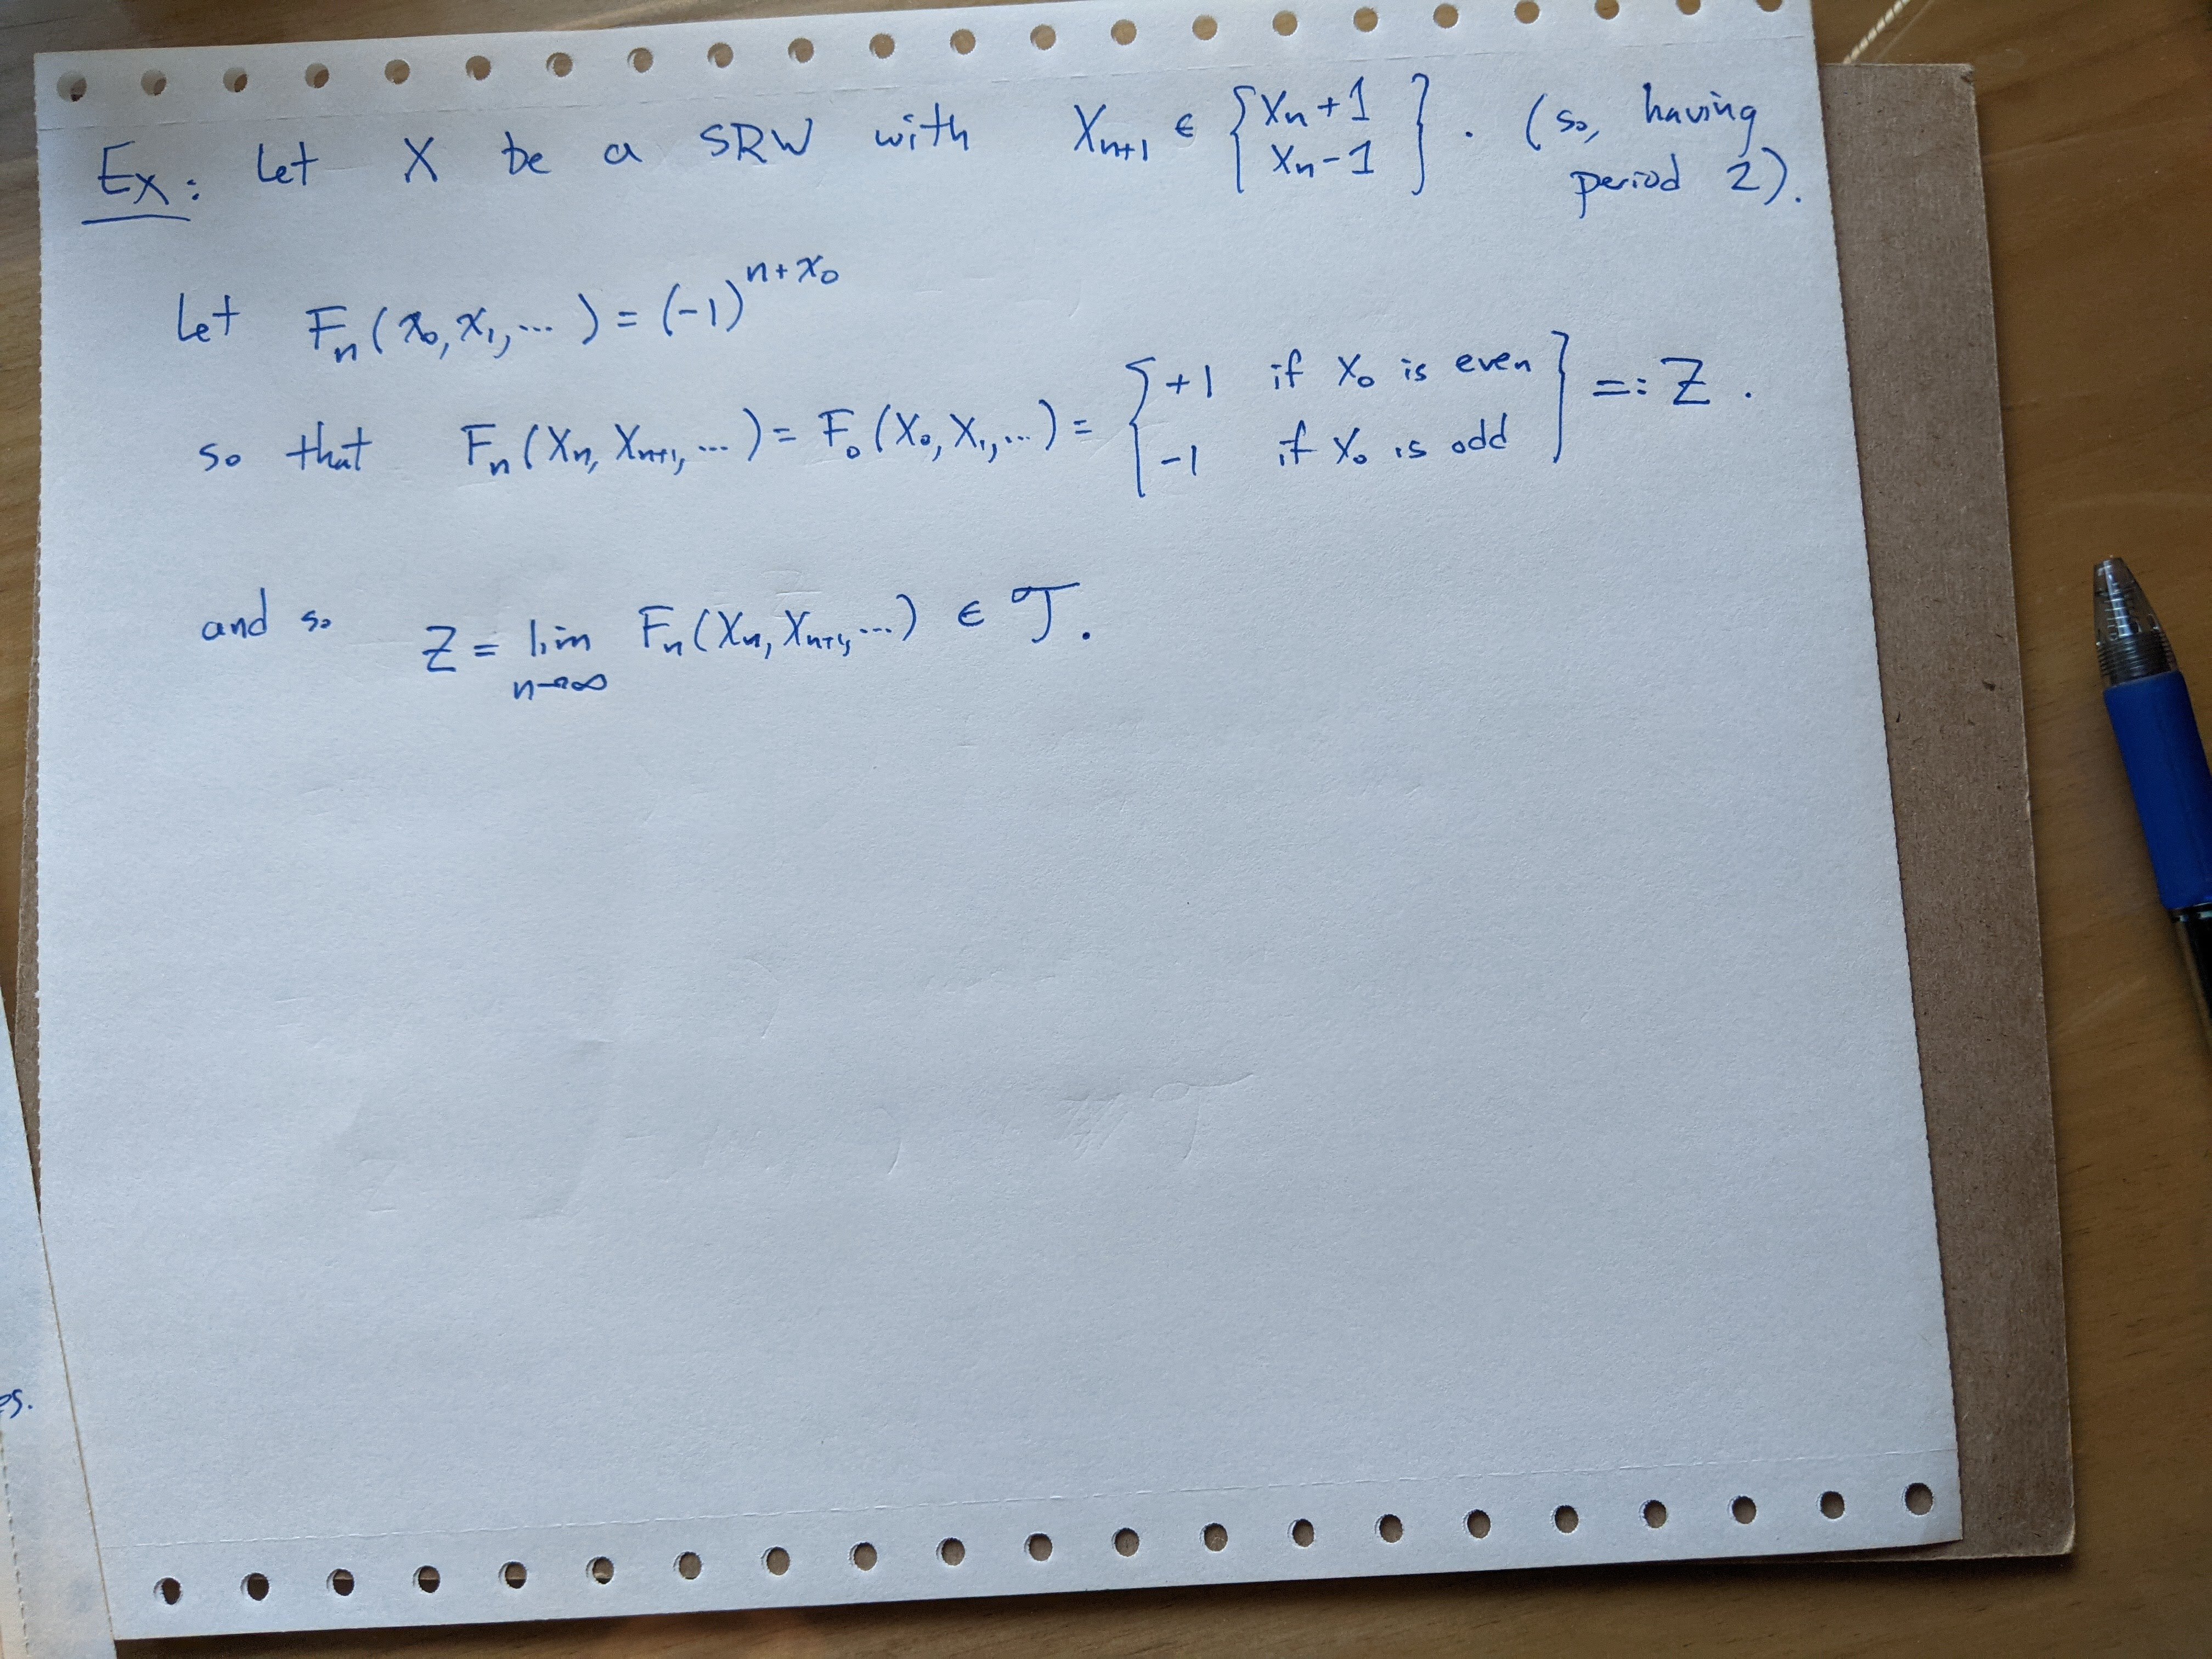 Ex: Let X be a SRW with Xₙ₊₁ ∈ { Xₙ+1
Xₙ-1 } . (so, having
period 2).
Let Fₙ(x₀, x₁, ...) = (-1)ⁿ⁺ˣ₀
so that Fₙ(Xₙ, Xₙ₊₁, ...) = F₀(X₀, X₁, ...) = { +1 if X₀ is even
-1 if X₀ is odd } =: Z .
and so Z = lim Fₙ(Xₙ, Xₙ₊₁, ...) ∈ 𝒯.
n→∞
es.